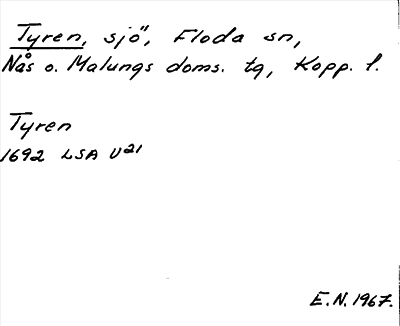 Tyren, sjö, Floda sn,
Nås o. Malungs doms. tg, Kopp. l.
Tyren
1692 LSA U21
E.N. 1967.